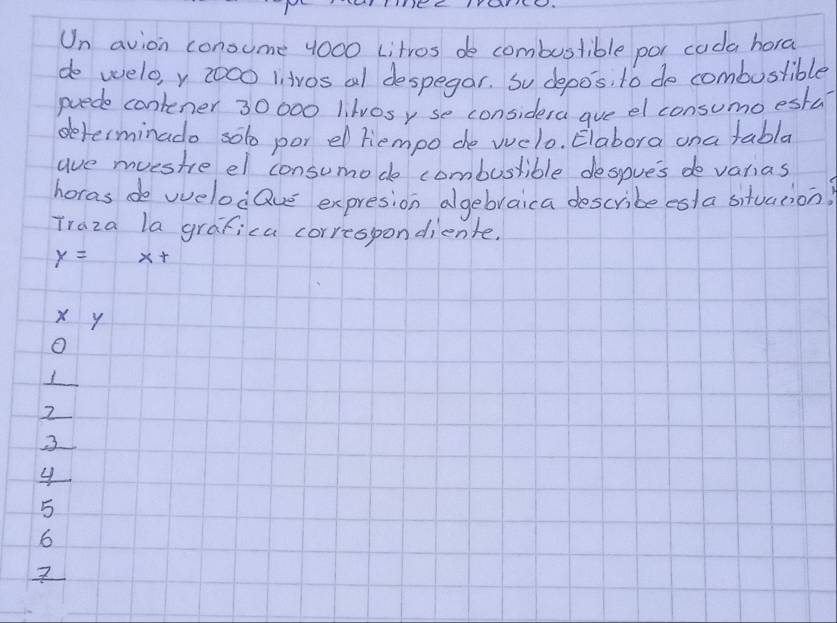 Un avión consume 4000 Litros de combustible por cada hora
de vuelo, y 2000 litros al despegar. Su depósito de combustible
puede contener 30 000 litros y se considera que el consumo está
determinado sólo por el tiempo de vuelo. Elabora una tabla
que muestre el consumo de combustible después de varias
horas de vuelo ¿Qué expresión algebraica describe esta situación?
Traza la gráfica correspondiente.
y = x +
x y
0
1
2
3
4
5
6
7